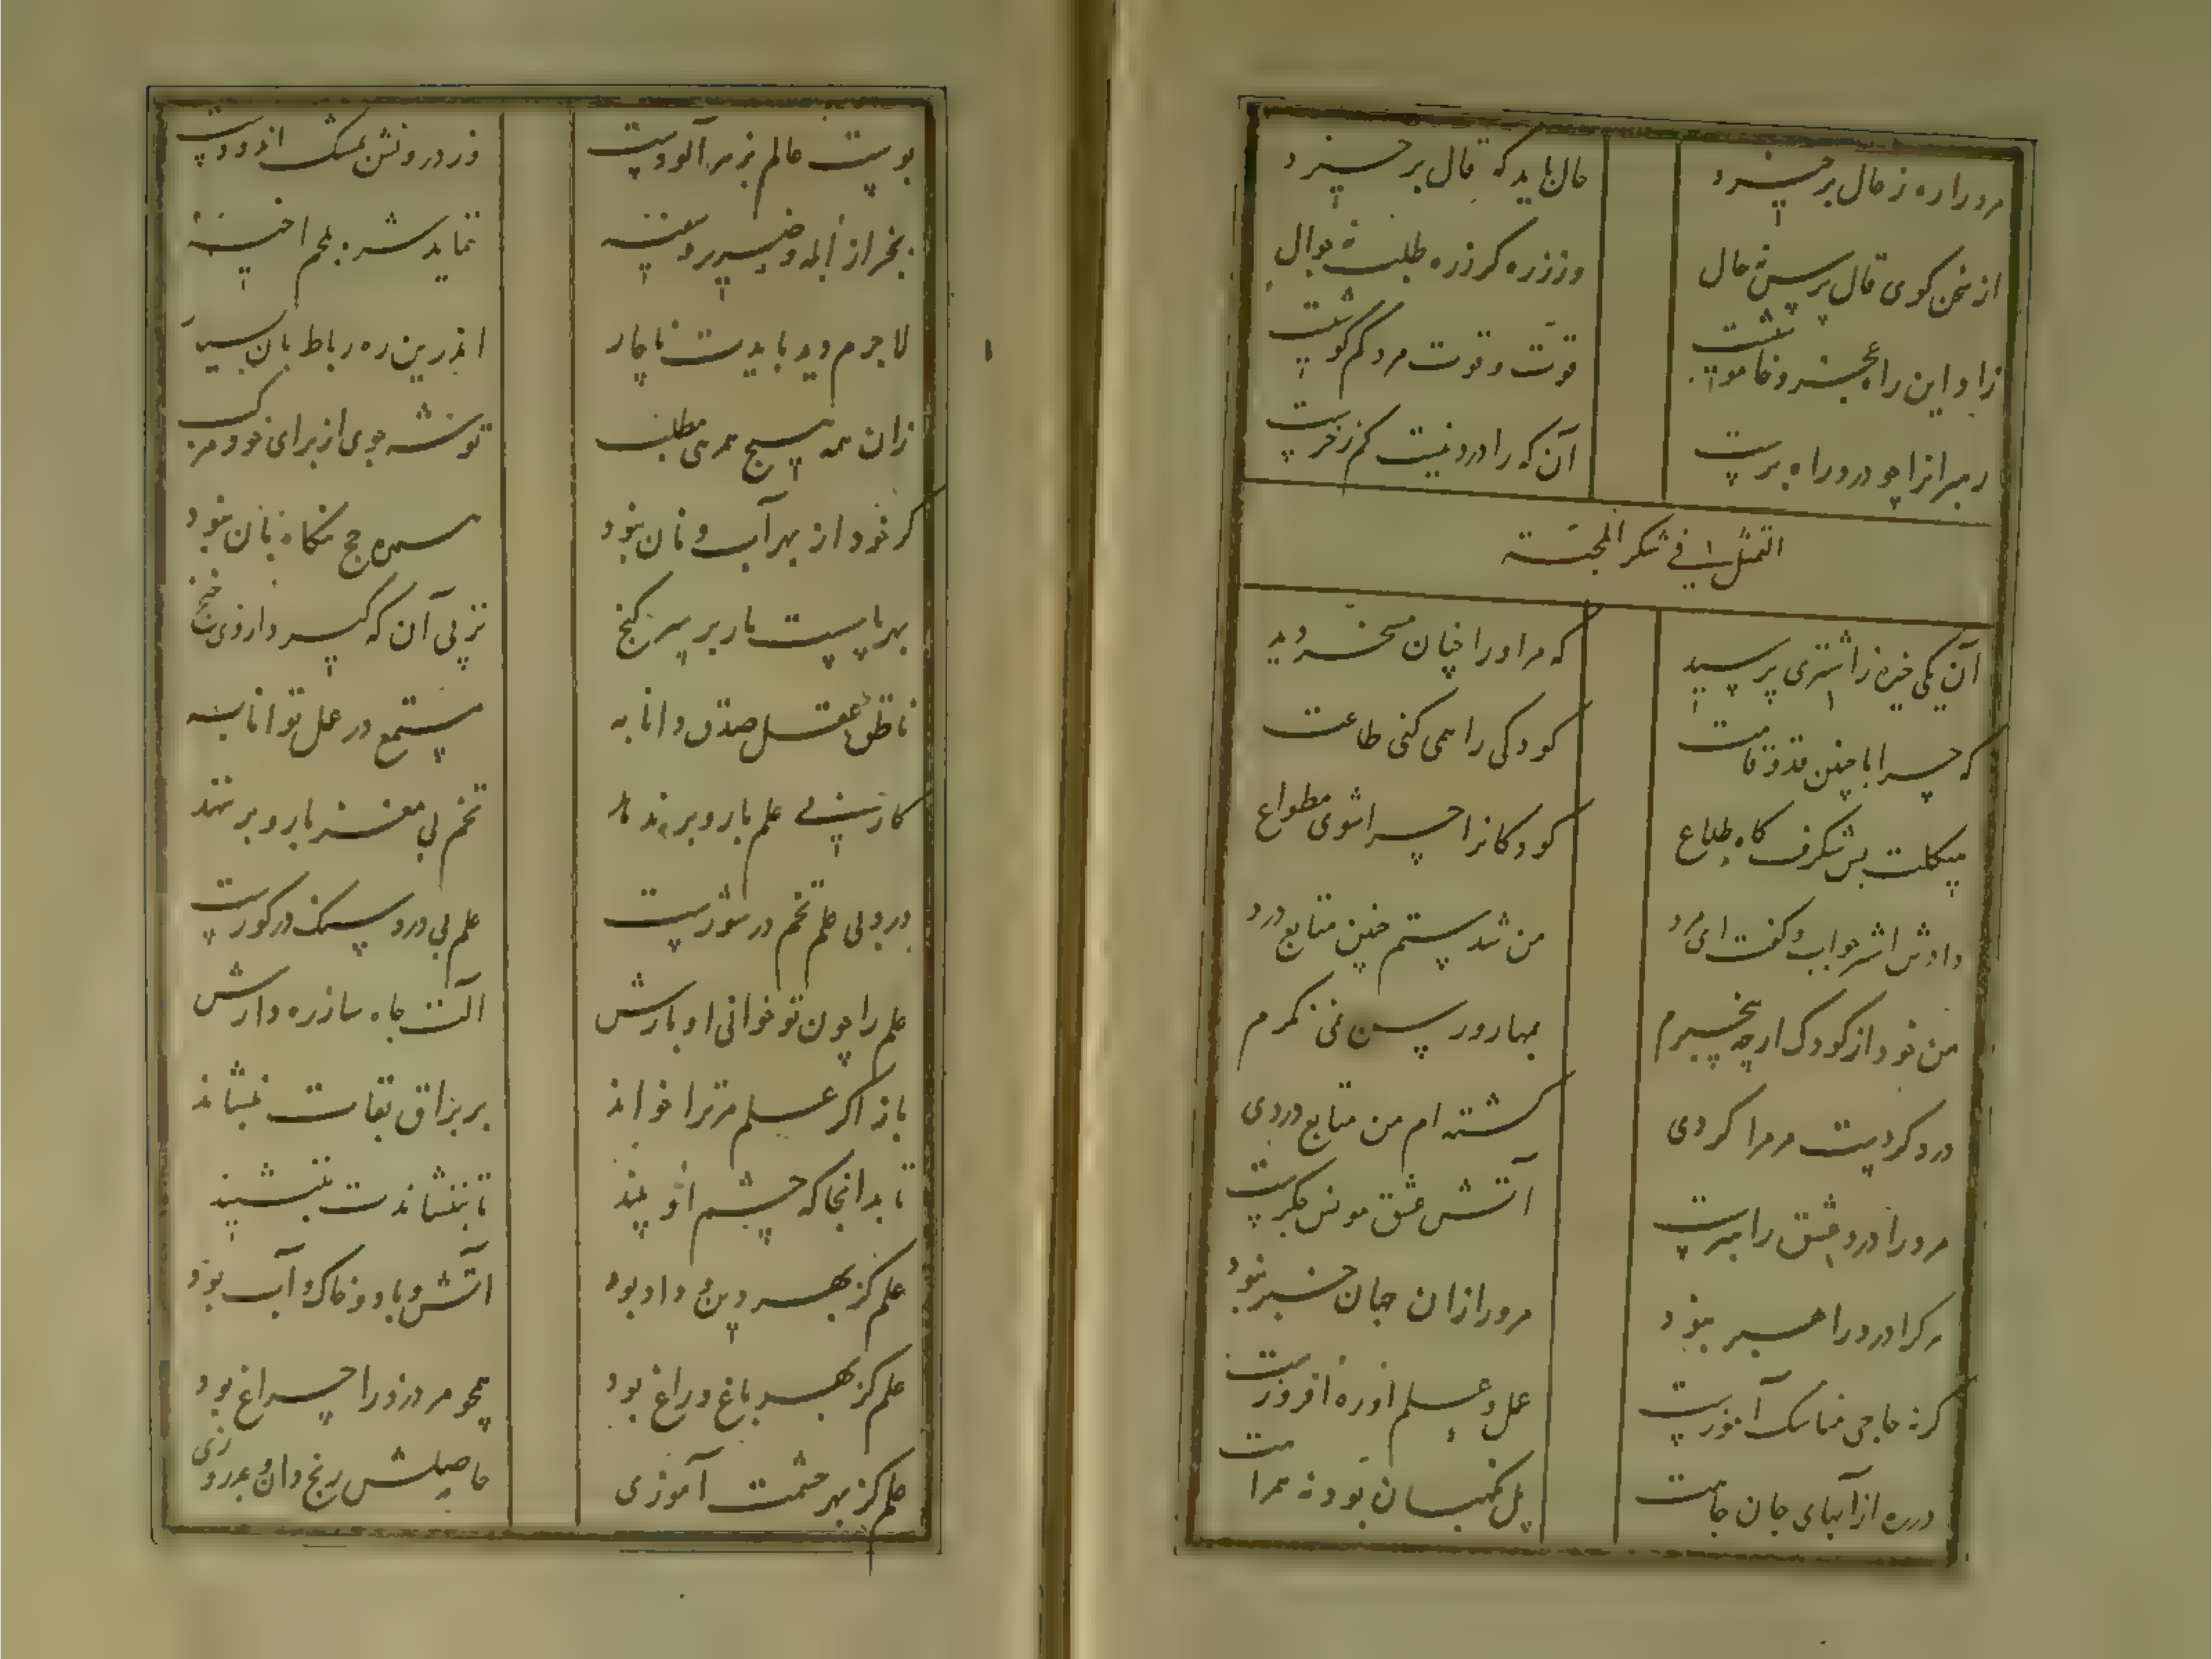 مرد را ره ز حال برخیزد حال باید که قال برخیزد
از سخن گوی قال پرس نه حال وز زره گر زره طلب نه جوال
زاد این راه عجز و خاموشیست قوت و قوت مرد کم گوشیست
رهبرانرا چو درد راه برست آن که را درد نیست کم ز خرست
التمثل فی شکر المحبة
آن یکی خیره ز اشتری پرسید که مر او را چنان مسخر دید
که چرا با چنین قد و قامت کودکی را همی کنی طاعت
هیکلت بس شگرف گاه طلاع کودکانرا چرا شوی مطواع
دادش اشتر جواب و گفت ای مرد من شدستم چنین متابع درد
من خود از کودک ارچه بیخبرم بمهار و رسن نمی نگرم
درد کردست مر مرا کردی گشته ام من متابع دردی
مرد را درد عشق راهبرست آتش عشق مونس جگرست
هرکرا درد راهبر نبود مرورا زان جهان خبر نبود
گرنه حاجی مناسک آموزست عمل و علم او ره افروزست
در ره از آبهای جان جامت پل نگهبان بود نه همرا مت
پوست عالم بزهر آلودست وز درونش بمشک اندودست
بخر از ابله و ضریر و سفیه ننماید شر بلحم اخیه
لاجرم دید بایدت ناچار اندرین ره رباط بان بسیار
زان همه هیچ همرهی مطلب توشه جوی از برای خود مرکب
گر خود از بهر آب و نان نبود سرده حج نگاه بان نبود
بهر پاسست مار بر سر گنج نز پی آن که گیرد از وی خنج
ناطق عقل صدق دانا به مستمع در عمل توانا به
کار بی علم بار و بر ندهد تخم بی مغز بار و بر ندهد
درد بی علم تخم در شورست علم بی درد سنگ در گورست
علم را چون تو خوانی او بارش آلت جاه سازد و دارش
باز اگر علم مر ترا خواند بر براق بقات بنشاند
تا بدانجا که چشم او بیند تا بننشاندت بننشیند
علم کز بهر دین و داد بود آتش و باد و خاک و آب بود
علم کز بهر باغ و راغ بود همچو مر دزد را چراغ بود
علم کز بهر حشمت آموزی حاصلش رنج دان و بد روزی